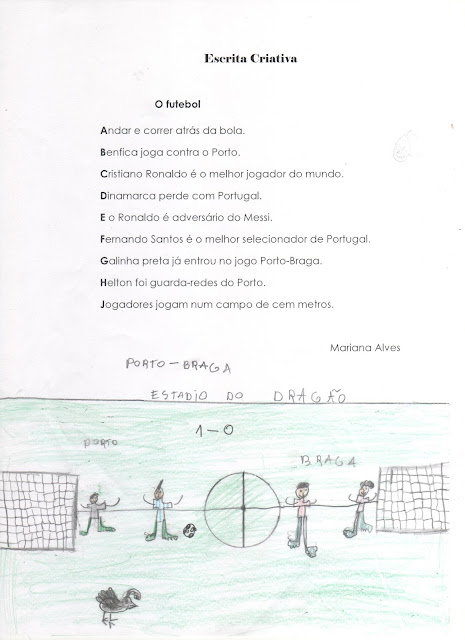 Escrita Criativa
O futebol
Andar e correr atrás da bola.
Benfica joga contra o Porto.
Cristiano Ronaldo é o melhor jogador do mundo.
Dinamarca perde com Portugal.
E o Ronaldo é adversário do Messi.
Fernando Santos é o melhor selecionador de Portugal.
Galinha preta já entrou no jogo Porto-Braga.
Helton foi guarda-redes do Porto.
Jogadores jogam num campo de cem metros.
Mariana Alves
PORTO-BRAGA
ESTADIO DO DRAGÃO
1-0
PORTO
BRAGA